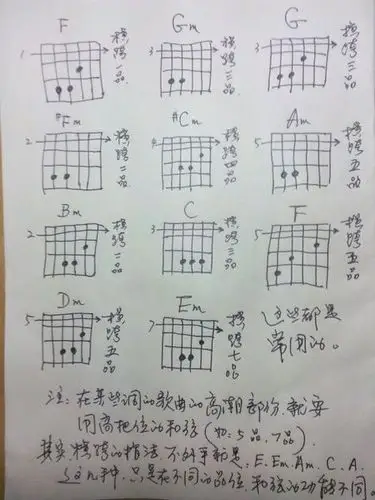 F Gm G
1 横跨一品 3 横跨三品 3 横跨三品
#Fm #Cm Am
2 横跨二品 4 横跨四品 5 横跨五品
Bm C F
2 横跨二品 3 横跨三品 5 横跨五品
Dm Em
5 横跨五品 7 横跨七品
这些都是
常用的。
注：在某些调的歌曲的高潮部份，就要
用高把位的和弦（如：5品、7品）
其实横跨的指法，不外乎就是：E. Em. Am. C. A.
这几种，只是在不同的品位，和弦的功能不同。